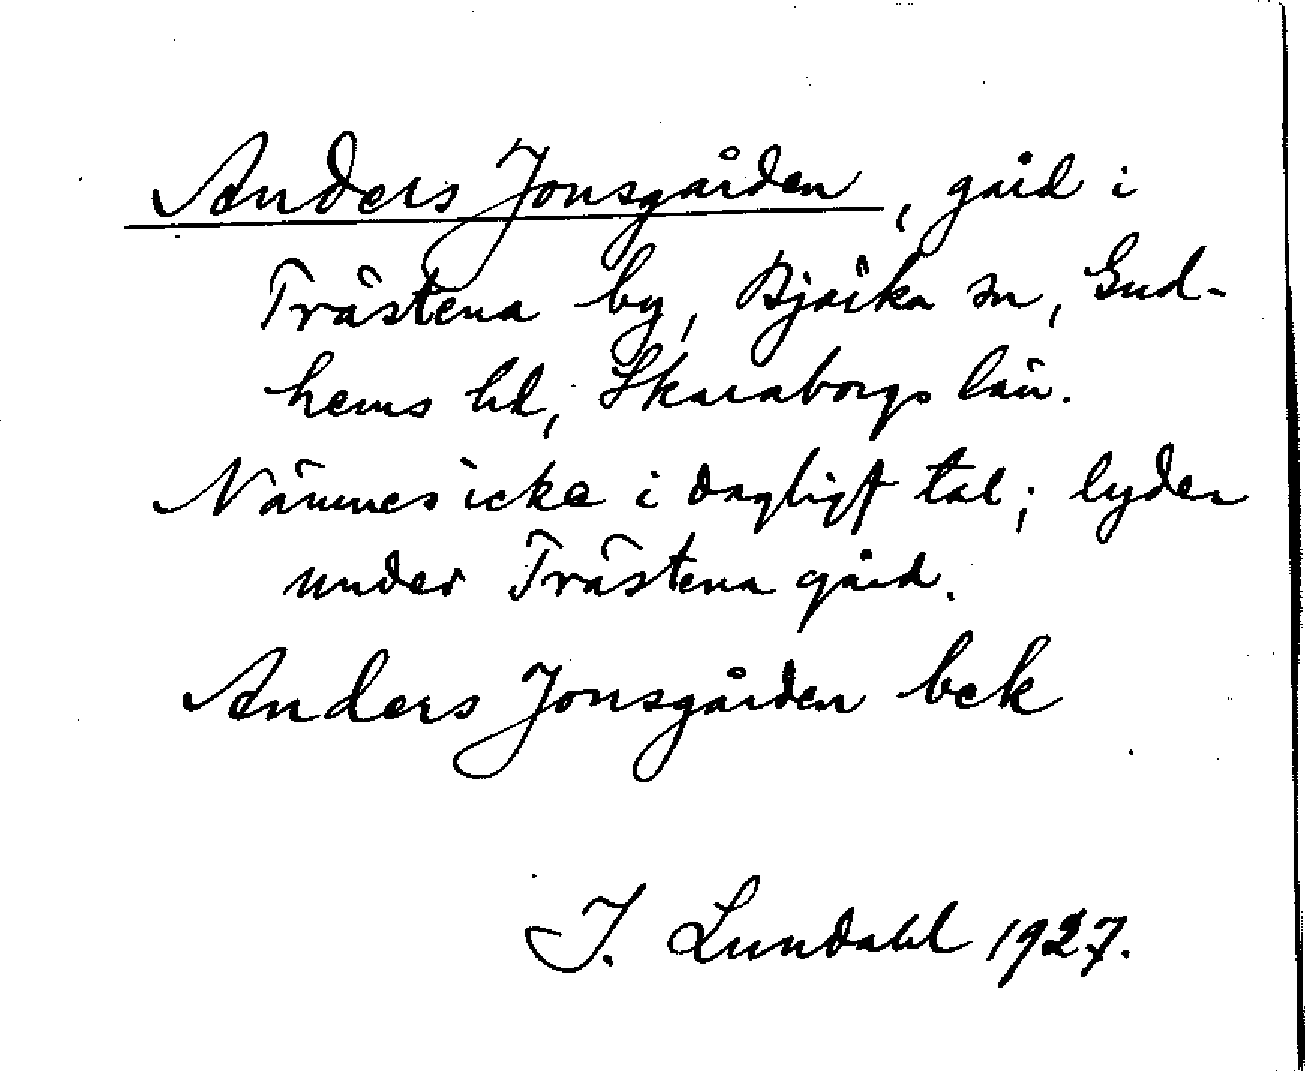 Anders Jonsgården, gård i
Trästena by, Bjärka sn, Gud-
hems hd, Skaraborgs län.
Nämnes icke i dagligt tal; lyder
under Trästena gård.
Anders Jonsgården bek
I. Lundahl 1927.